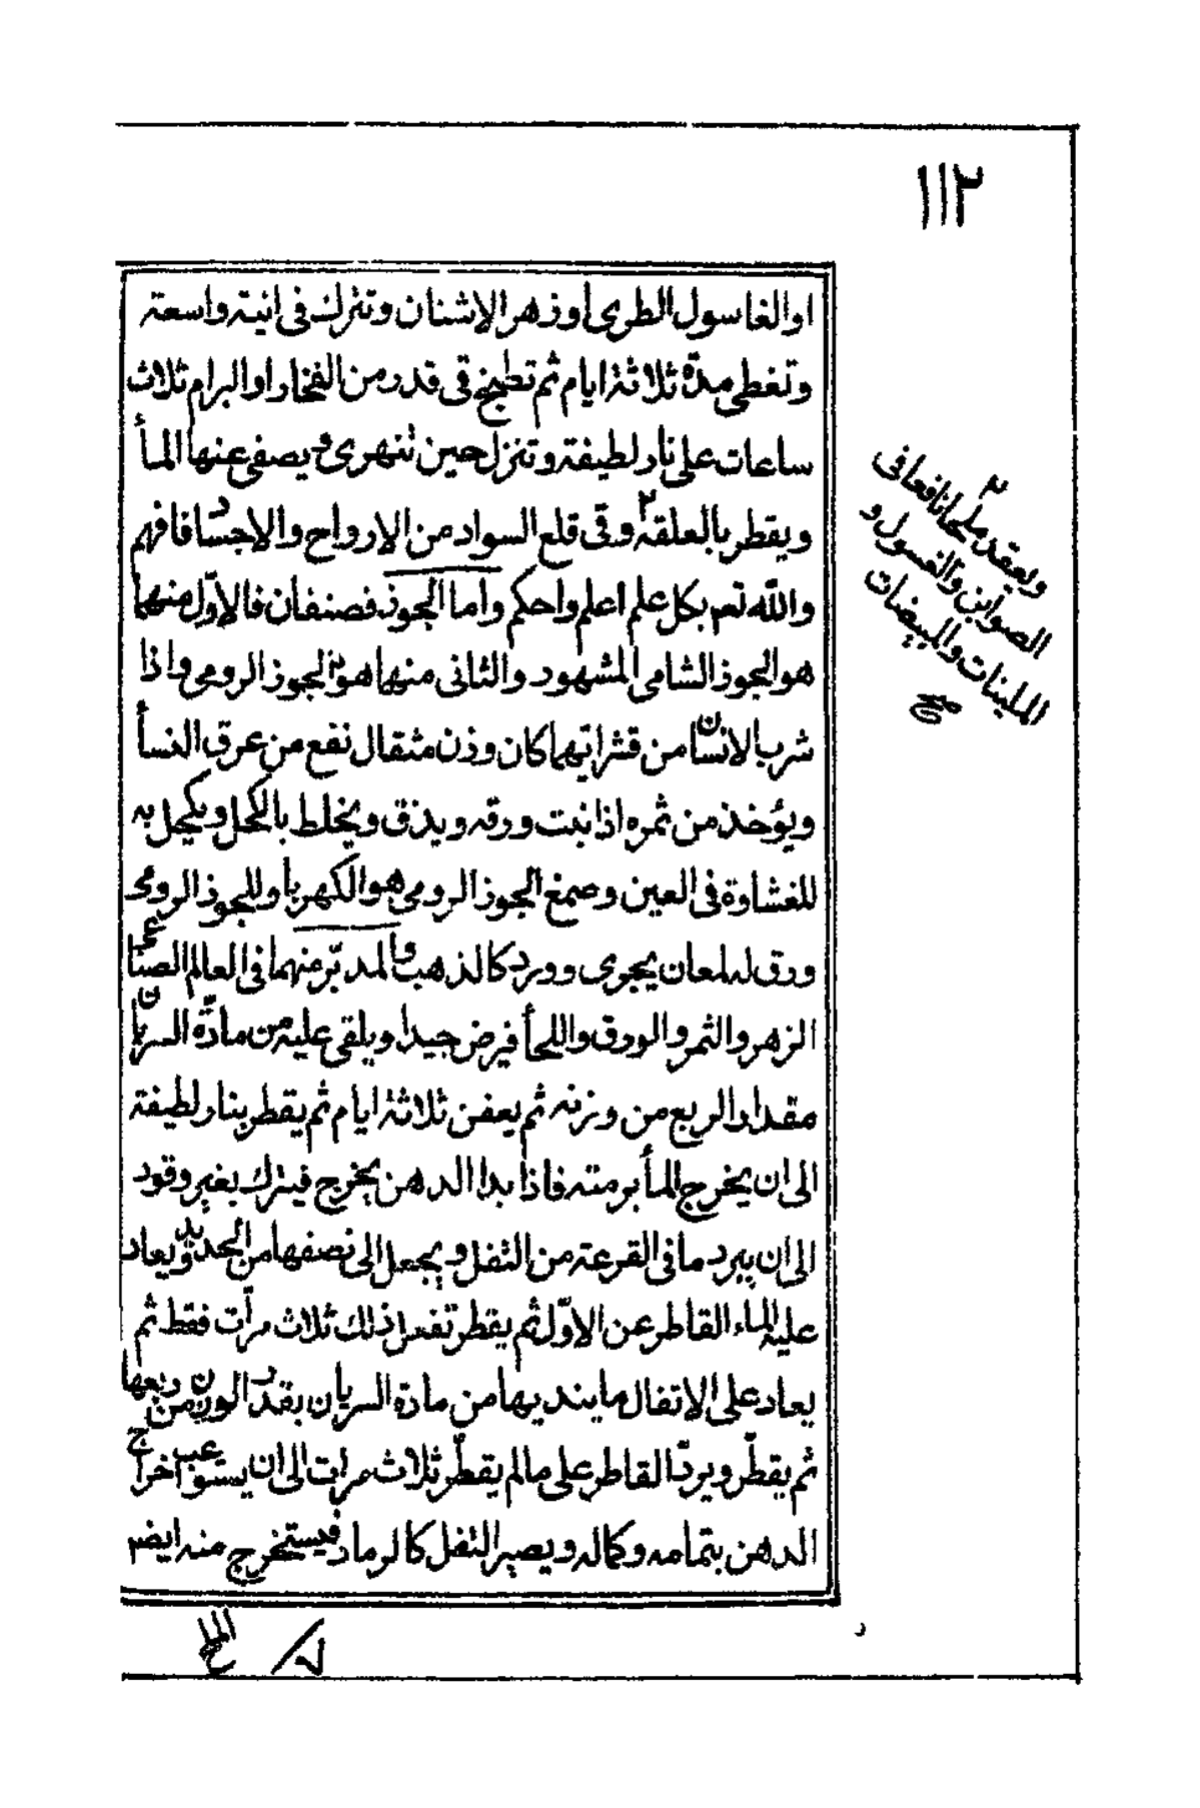 ١١٢
او الغاسول الطرى او زهر الاشنان وتترك فى انية واسعة
وتغطى مدّة ثلاثة ايام ثم تطبخ فى قدر من الفخار او البرام ثلاث
ساعات على نار لطيفة وتنزل حين تنهرى ويصفى عنها المأ
ويقطر بالعلقة ٢ وفى قلع السواد من الارواح والاجساد فافهم
والله تعم بكل علم اعلم واحكم واما الجوز فصنفان فالاوّل منهما
هو الجوز الشامى المشهود والثانى منهما هو الجوز الرومى واذا
شرب الانسان من قشرايهما كان وزن مثقال نفع من عرق النسأ
ويؤخذ من ثمره اذا نبت ورقه ويدق ويخلط بالكحل ويكحل به
للغشاوة فى العين وصمغ الجوز الرومى هو الكهربا وللجوز الرومى
ورق له لمعان يجوى وورد كالذهب والمدبّر منهما فى العالم الصناعى
الزهر والثمر والورق واللحأ فيرض جيدا ويلقى عليه من مادّة السربان
مقدار الربع من وزنه ثم يعفن ثلاثة ايام ثم يقطر بنار لطيفة
الى ان يخرج المأ برمته فاذا بدا الدهن يخرج فيترك بغير وقود
الى ان يبرد ما فى القرعة من الثفل ويجعل الى نصفها من الجديد ويعاد
عليه الماء القاطر عن الاوّل ثم يقطر تفعل ذلك ثلاث مرآت فقط ثم
يعاد على الاتفال ما ينديها من مادة السريان بقدر الوزن من ربعها
ثم يقطّر ويردّ القاطر على مالم يقطّر ثلاث مرات الى ان يستوعب اخراج
الدهن بتمامه وكماله ويصير الثفل كالرماد فيستخرج منه ايضا
٢
ويعقد ملحا نافعا فى
الصوابن والغسول و
الملينات والمبيضات
صح
الملح